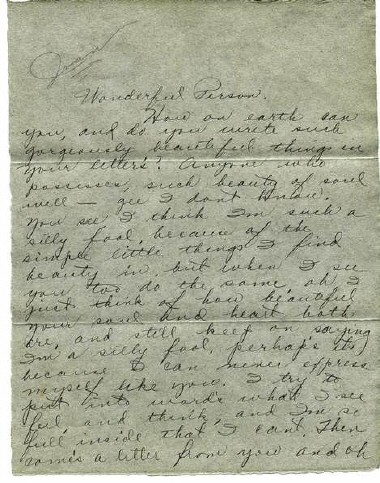 Wonderful Person.
How on earth can
you, and do you write such
gorgiously beautiful things in
your letters? Anyone who
possesses, such beauty of soul
well — gee I dont know.
You see I think I'm such a
silly fool, because of the
simple little things I find
beauty in. but when I see
you too do the same, oh I
just think of how beautiful
your soul and heart both
are, and still keep on saying
I'm a silly fool, perhap's its
because I can never express
myself like you. I try to
put into word's what I see
feel, and think, and I'm so
full inside that I cant. Then
come's a letter from you and oh